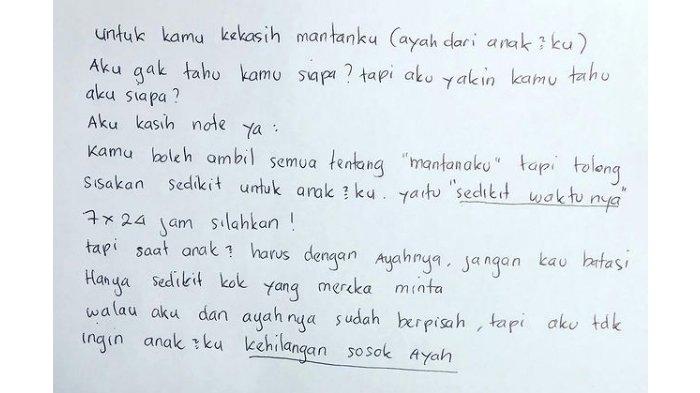 untuk kamu kekasih mantanku (ayah dari anak²ku)
Aku gak tahu kamu siapa? tapi aku yakin kamu tahu
aku siapa?
Aku kasih note ya :
Kamu boleh ambil semua tentang "mantanaku" tapi tolong
Sisakan sedikit untuk anak²ku. yaitu "sedikit waktunya"
7x24 jam silahkan!
tapi saat anak² harus dengan Ayahnya, jangan kau batasi
Hanya sedikit kok yang mereka minta
walau aku dan ayahnya sudah berpisah, tapi aku tdk
ingin anak²ku kehilangan sosok Ayah